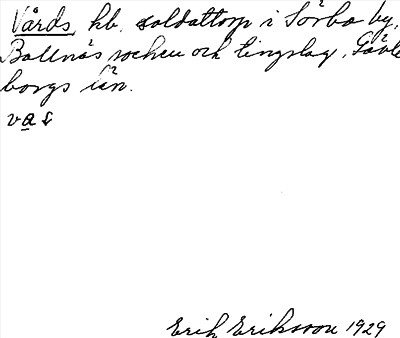 Vårds hb. soldattorp i Sörbo by,
Bollnäs socken och tingslag, Gävle
borgs län.
vas
Erik Eriksson 1929